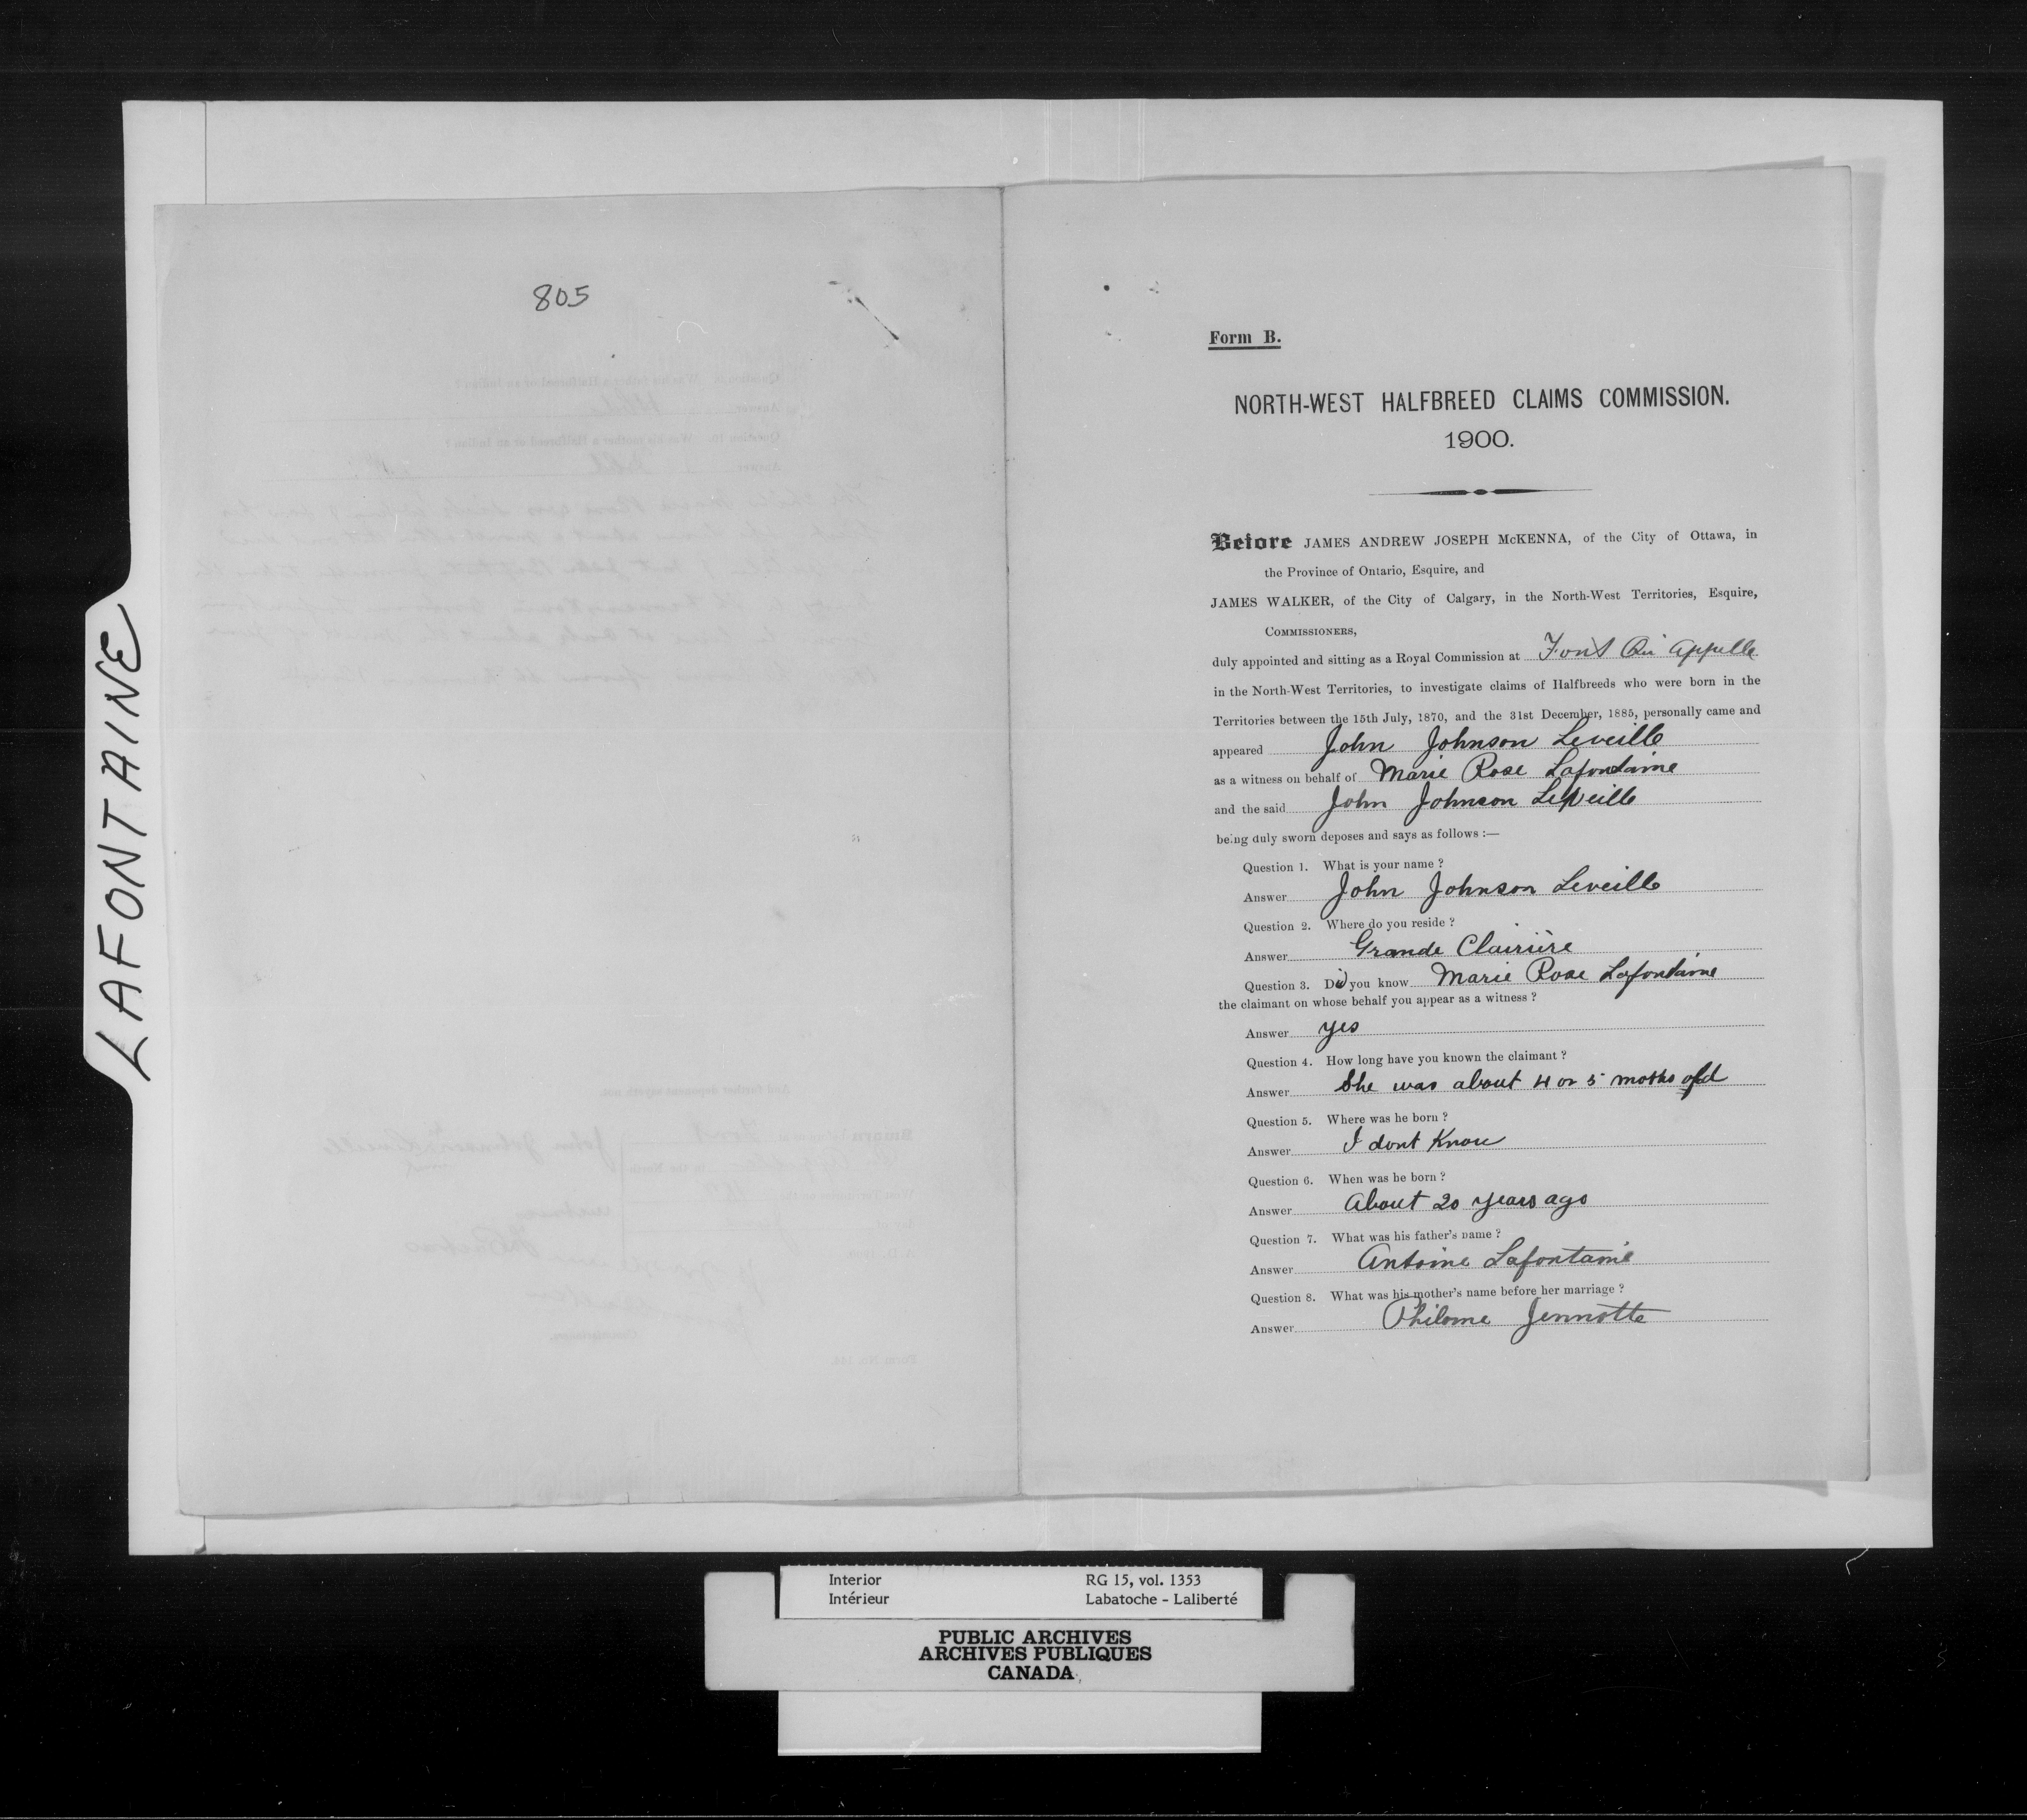 LAFONTAINE
805
Form B.
NORTH-WEST HALFBREED CLAIMS COMMISSION.
1900.
Before JAMES ANDREW JOSEPH McKENNA, of the City of Ottawa, in
the Province of Ontario, Esquire, and
JAMES WALKER, of the City of Calgary, in the North-West Territories, Esquire,
COMMISSIONERS,
duly appointed and sitting as a Royal Commission at Fort Qu Appelle
in the North-West Territories, to investigate claims of Halfbreeds who were born in the
Territories between the 15th July, 1870, and the 31st December, 1885, personally came and
appeared John Johnson Leveille
as a witness on behalf of Marie Rose Lafontaine
and the said John Johnson Leveille
being duly sworn deposes and says as follows :—
Question 1. What is your name ?
Answer John Johnson Leveille
Question 2. Where do you reside ?
Answer Grande Clairière
Question 3. Did you know Marie Rose Lafontaine
the claimant on whose behalf you appear as a witness ?
Answer yes
Question 4. How long have you known the claimant ?
Answer She was about 4 or 5 moths old
Question 5. Where was he born ?
Answer I dont Know
Question 6. When was he born ?
Answer About 20 years ago
Question 7. What was his father's name ?
Answer Antoine Lafontaine
Question 8. What was his mother's name before her marriage ?
Answer Philome Jennotte
Interior RG 15, vol. 1353
Intérieur Labatoche - Laliberté
PUBLIC ARCHIVES
ARCHIVES PUBLIQUES
CANADA